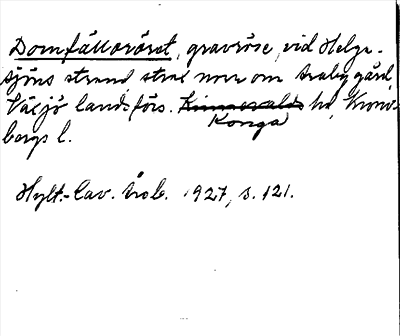 Domfälloröret, gravröse, vid Helga-
sjöns strand, strax norr om Araby gård,
Växjö landsförs. Kinnevalds hd, Krono-
Konga
bergs l.
Hylt.-Cav. Årsb. 1927, s. 121.